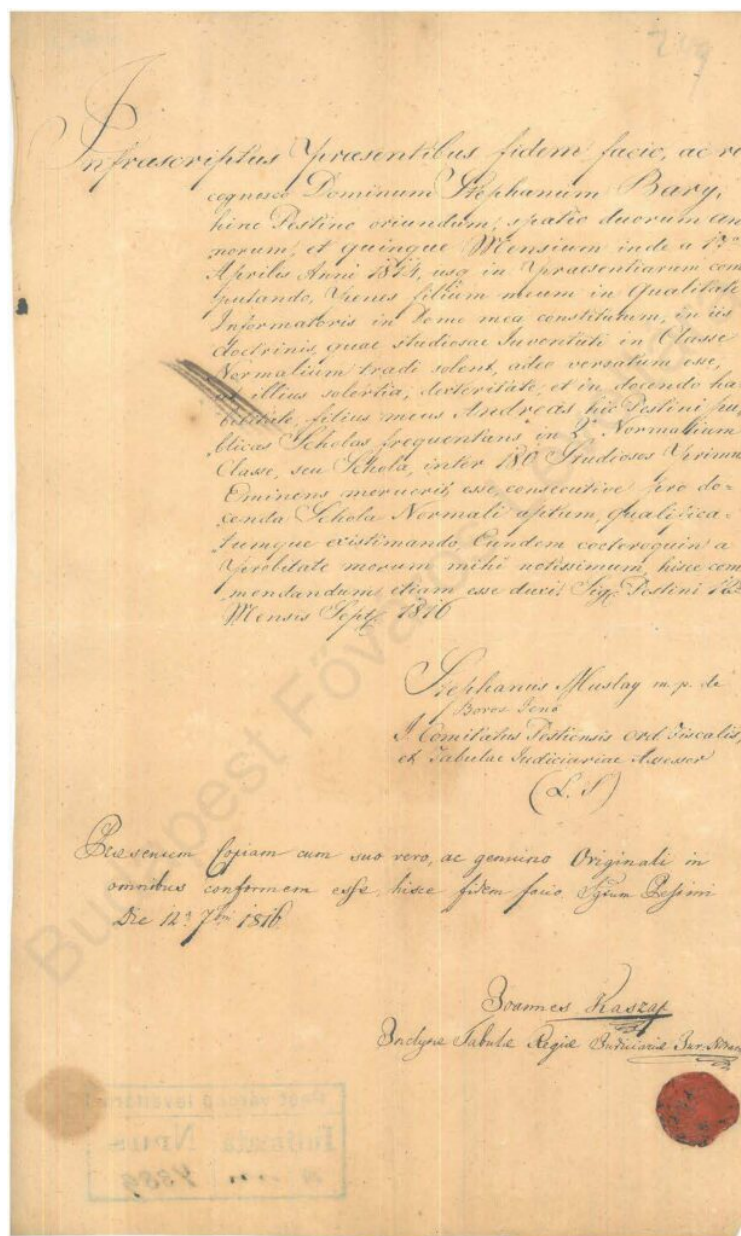 249
Infrascriptus Praesentibus fidem facio, ac re
cognosco Dominum Stephanum Bary,
hinc Pestino oriundum, spatio duorum an
norum, et quinque Mensium inde a 1ma
Aprilis Anni 1814, usq in Praesentiarum com
putando, Penes filium meum in Qualitate
Informatoris in Domo mea constitutum, in iis
doctrinis, quae studiosae Juventuti in Classe
Normalium tradi solent, adeo versatum esse,
ut illius solertia, dexteritate, et in docendo ha
bilitate, filius meus Andreas, hic Pestini pu,
blicas Scholas frequentans in 2a Normalium
Classe, seu Schola, inter 180 Studiosos Primus
Eminens meruerit esse, consecutive pro do=
cenda Schola Normali aptum, qualifica=
tumque existimando, Eundem coeteroquin a
probitate morum mihi notissimum, hisce com
mendandum etiam esse duxi. Sig. Pestini
Mensis Sept. 1816
Stephanus Muslay m. p. de
Boros Jenő
I. Comitatus Pestiensis Ord Fiscalis,
et Tabulae Judiciariae Assessor
(L. S)
Praesentem Copiam cum suo vero, ac genuino Originali in
omnibus conformem esse, hisce fidem facio. Sigum Pestini
Die 12a 7bri 1816.
Joannes Kaszap
Inclytae Tabulae Regiae Judiciariae Jur.
Budapest Főváros